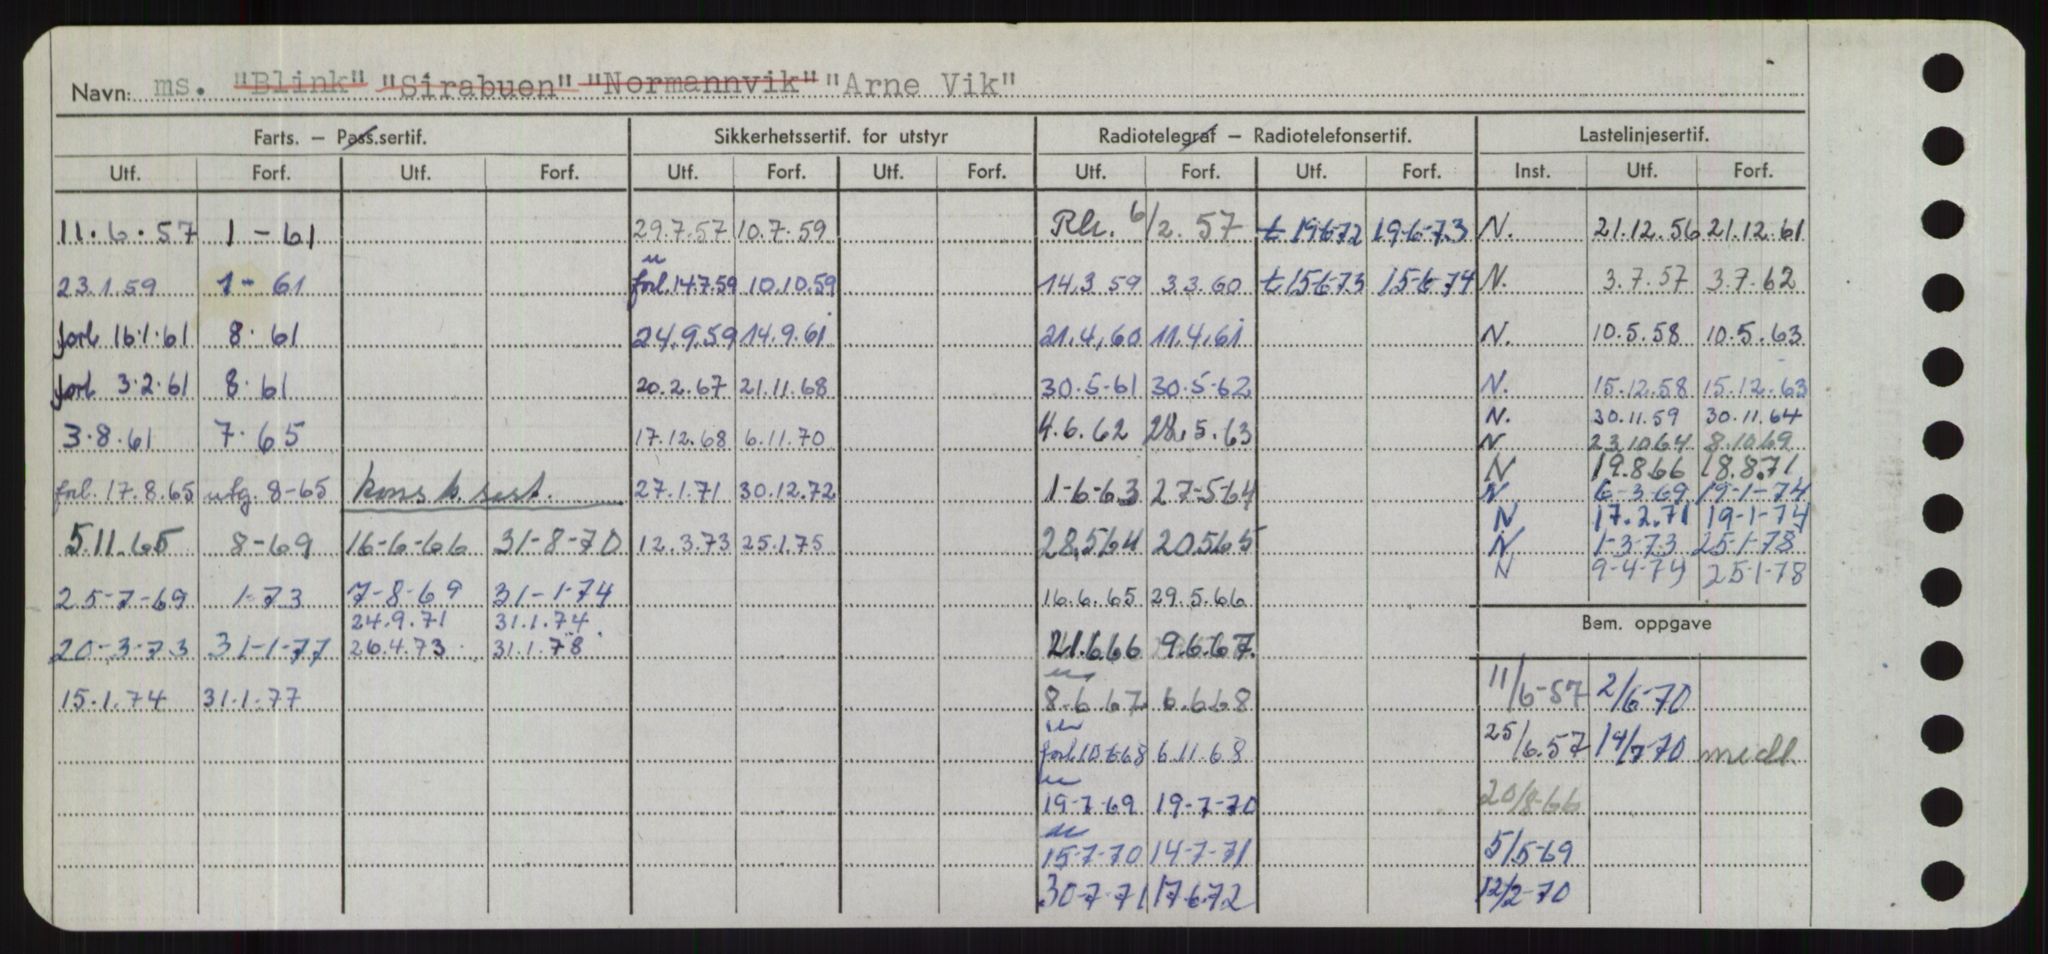 Navn: ms. "Blink" "Sirabuen" "Normannvik" "Arne Vik"
Farts. — Pass.sertif. Sikkerhetssertif. for utstyr Radiotelegraf — Radiotelefonsertif. Lastelinjesertif.
Utf. Forf. Utf. Forf. Utf. Forf. Utf. Forf. Utf. Forf. Utf. Forf. Inst. Utf. Forf.
11.6.57 1-61 29.7.57 10.7.59 6/2.57 t 19-6-72 19-6-73 N. 21.12.56 21.12.61
23.1.59 1-61 forl. 14.7.59 10.10.59 14.3.59 3.3.60 t 15-6-73 15-6-74 N. 3.7.57 3.7.62
forl 16.1.61 8.61 24.9.59 14.9.61 21.4.60 11.4.61 N. 10.5.58 10.5.63
forl 3.2.61 8.61 20.2.67 21.11.68 30.5-61 30.5-62 N. 15.12.58 15.12.63
N. 30.11.59 30.11.64
3.8.61 7.65 17.12.68 6.11.70 4.6.62 28.5.63 N 23.10.64 8.10.69
N 19.8.66 18.8.71
forl. 17.8.65 utg. 8-65 kons. b. sert. 27.1.71 30.12.72 1-6-63 27-5-64 N. 6-3-69 19-1-74
N 17.2.71 19-1-74
5.11.65 8-69 16-6-66 31-8-70 12.3.73 25.1.75 28.5.64 20.5.65 N 1-3-73 25-1-78
N 9-4-74 25-1-78
25-7-69 1-73 7-8-69 31-1-74 16.6.65 29.5.66
24.9.71 31.1.74
Bem. oppgave
20-3-73 31-1-77 26.4.73 31.1.78 21.6.66 9.6.67.
15.1.74 31.1.77 8.6.67 6.6.68 11/6-57 2/6-70
forl. 10-6-68 6.11.68 25/6.57 14/7-70 medl.
19-7-69 19-7-70 20/8-66
15-7-70 14-7-71 5/5-69
30-7-71 17.6.72 12/2-70